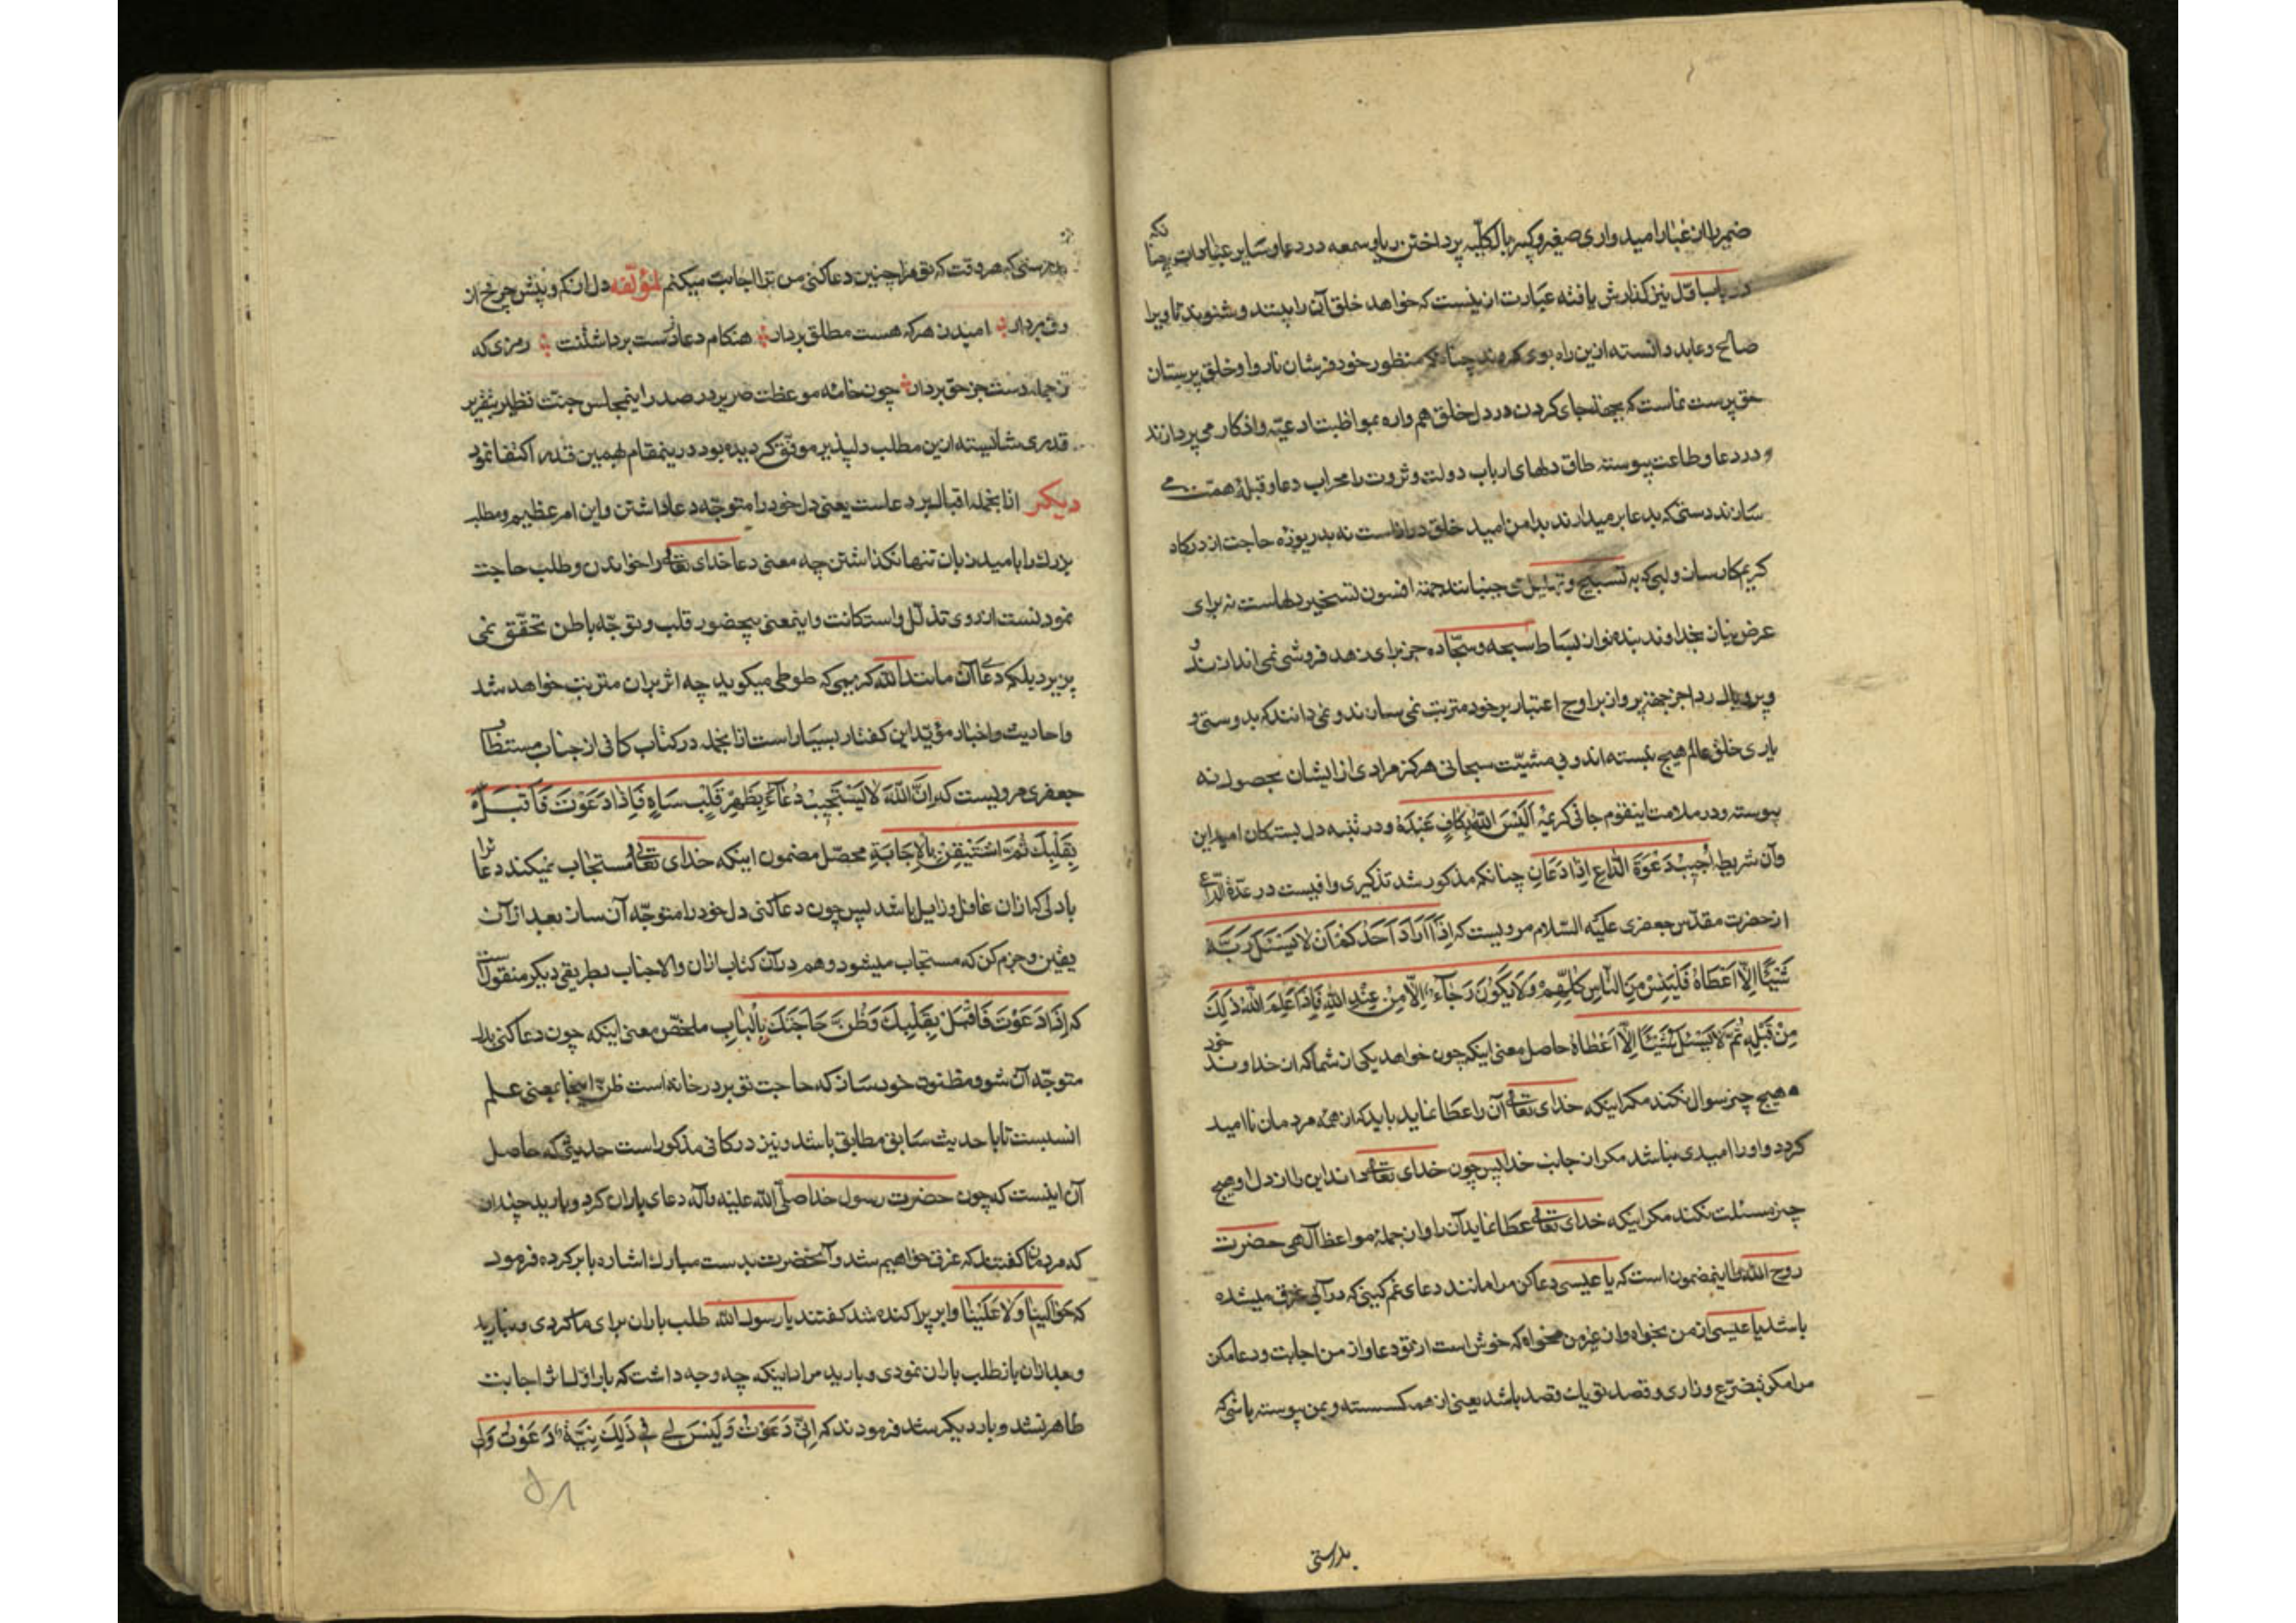 ضمیر از غبار امیدواری صغیر و کبیر بالکلیه پرداختن ریا و سمعه در دعا و سایر عبادات چنانکه
در باب اول نیز گذارش یافته عبارت از نیست که خواهد خلق آن را بینند و شنوند تا او را
صالح و عابد دانسته ازین راه بوی کروند چنانکه منظور خودفروشان ناروا و خلق پرستان
حق پرست نماست که بجهة جای کردن در دل خلق همواره بمواظبت ادعیه و اذکار می پردازند
و در دعا و طاعت پیوسته طاق دلهای ارباب دولت و ثروت را محراب دعا و قبلهٔ همت می
سازند دستی که بدعا برمیدارند بدامن امید خلق درازاست نه بدریوزه حاجت از درکاه
کریم کارساز و لبی که به تسبیح و تهلیل می جنبانند جهة افسون تسخیر دلهاست نه برای
عرض نیاز بخداوند بنده نواز بساط سبحه و سجاده جز برای زهد فروشی نمی اندازند و
و پر و بال ردا جز جهة پرواز بر اوج اعتبار بر خود مترتب نمی سازند و نمی دانند که بدوستی و
یاری خلق عالم هیچ نبسته اند و بی مشیت سبحانی هرکز مرادی از ایشان بحصول نه
پیوسته و در ملامت اینقوم جافی کریمهٔ اَلَیْسَ اللهُ بِکافٍ عَبْدَهُ و در تنبیه دل بستکان امید این
و آن شریطهٔ اُجیبُ دَعْوَةَ الدّاعِ اِذا دَعانِ چنانکه مذکور شد تذکیری وافیست در عدة الداعی
از حضرت مقدس جعفری علیه السلام مرویست که اِذا اَرادَ اَحَدُکُمْ اَنْ لا یَسْئَلَ رَبَّهُ
شَیْئًا اِلّا اَعْطاهُ فَلْیَیْئَسْ مِنَ النّاسِ کُلِّهِمْ وَلا یَکُونُ رَجاءٌ اِلّا مِنْ عِنْدِ اللهِ فَاِذا عَلِمَ اللهُ ذلِکَ
مِنْ قَبْلِهِ ثُمَّ لا یَسْئَلُ شَیْئًا اِلّا اَعْطاهُ حاصل معنی اینکه چون خواهد یکی از شما که از خداوند خود
هیچ چیز سوال نکند مکر اینکه خدای تعالی آن را عطا نماید باید که از همهٔ مردمان ناامید
کردد و او را امیدی نباشد مکر از جانب خدا پس چون خدای تعالی داند این را از دل او هیچ
چیز مسئلت نکند مکر اینکه خدای تعالی عطا نماید آن را و از جملهٔ مواعظ آلهی حضرت
روح الله را اینمضمون است که یا عیسی دعا کن مرا مانند دعای غمکینی که در آبی غرق میشده
باشد یا عیسی از من بخواه و از غیر من مخواه که خوش است از تو دعا و از من اجابت و دعا مکن
مرا مکر بتضرع و زاری و قصد تو یک قصد باشد یعنی از همه کسسته و بمن پیوسته باشی که
بدرستی
بدرستی که هر وقت که تو مرا چنین دعا کنی من ترا اجابت میکنم لمؤلفه دل از کم و بیش چرخ از
رق بردار امید ز هر که هست مطلق بردار هنکام دعا دست برداشتنت رمزی که
ز جمله دست جز حق بردار چون خامه موعظت صریر در صدر اینمجلس جنت نظیر بتقریر
قدری شایسته ازین مطلب دلپذیر موفق کردیده بود درینمقام بهمین قدر اکتفا نمود
دیکر از انجمله اقبال بر دعاست یعنی دل خود را متوجه دعا داشتن و این امر عظیم و مطلب
بزرک را بامید زبان تنها نکذاشتن چه معنی دعا خدای تعالی را خواندن و طلب حاجت
نمودنست از روی تذلل و استکانت و اینمعنی بیحضور قلب و توجه باطن تحقق نمی
پذیرد بلکه دعای آن مانند الله کریمی که طوطی میکوید چه اثر بران مترتب خواهد شد
و احادیث و اخبار مؤید این کفتار بسیار است از انجمله در کتاب کافی از جناب مستطاب
جعفری مرویست که اِنَّ اللهَ لا یَسْتَجیبُ دُعاءً بِظَهْرِ قَلْبٍ ساهٍ فَاِذا دَعَوْتَ فَاَقْبِلْ
بِقَلْبِکَ ثُمَّ اسْتَیْقِنْ بِالْاِجابَةِ محصل مضمون اینکه خدای تعالی مستجاب نمیکند دعا را
با دلی که ازان غافل و زایل باشد پس چون دعا کنی دل خود را متوجه آن ساز بعد از آن
یقین و جزم کن که مستجاب میشود و هم در آن کتاب ازان والاجناب بطریقی دیکر منقولست
که اِذا دَعَوْتَ فَاَقْبِلْ بِقَلْبِکَ وَظُنَّ حاجَتَکَ بِالْبابِ ملخص معنی اینکه چون دعا کنی بدل
متوجه آن شو و مظنون خود ساز که حاجت تو بر در خانه است ظن اینجا بمعنی علم
انسبست تا با حدیث سابق مطابق باشد و نیز در کافی مذکور است حدیثی که حاصل
آن اینست که چون حضرت رسول خدا صلی الله علیه و آله دعای باران کرد و بارید چندان
که مردمان کفتند که غرق خواهیم شد و آنحضرت بدست مبارک اشاره بابر کرده فرمود
که حَوالَیْنا وَلا عَلَیْنا و ابر پراکنده شد کفتند یا رسول الله طلب باران برای ما کردی و نبارید
و بعد ازان باز طلب باران نمودی و بارید مراد اینکه چه وجه داشت که بار اول اثر اجابت
ظاهر نشد و بار دیکر شد فرمودند که اِنّی دَعَوْتُ وَلَیْسَ لی فی ذلِکَ نِیَّةٌ دَعَوْتُ وَلی